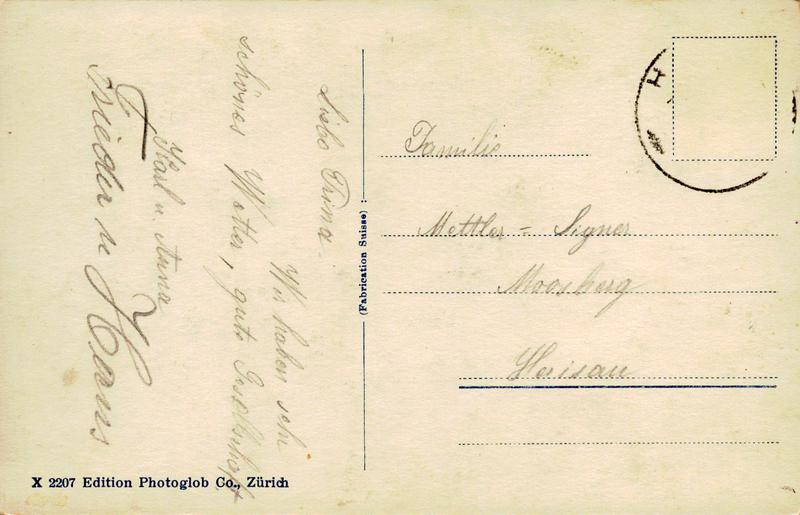 Liebe Trina.
Wir haben sehr
schönes Wetter, gute Gesellschaft
Karl u. Anna
Frieda u. Hans
(Fabrication Suisse)
Familie
Mettler = Signer
Moosberg
Herisau
H
X 2207 Edition Photoglob Co., Zürich